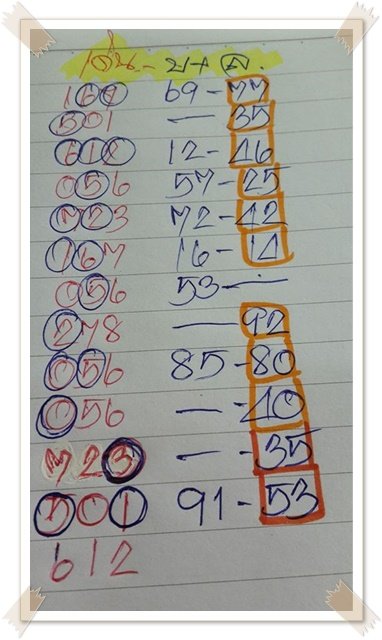 เด่น - บ + ล.
167 69 - 77
501 — 35
612 12 - 46
056 57 - 25
723 72 - 42
167 16 - 14
056 53 - —
278 — 92
056 85 - 80
056 — - 40
723 — - 35
501 91 - 53
612